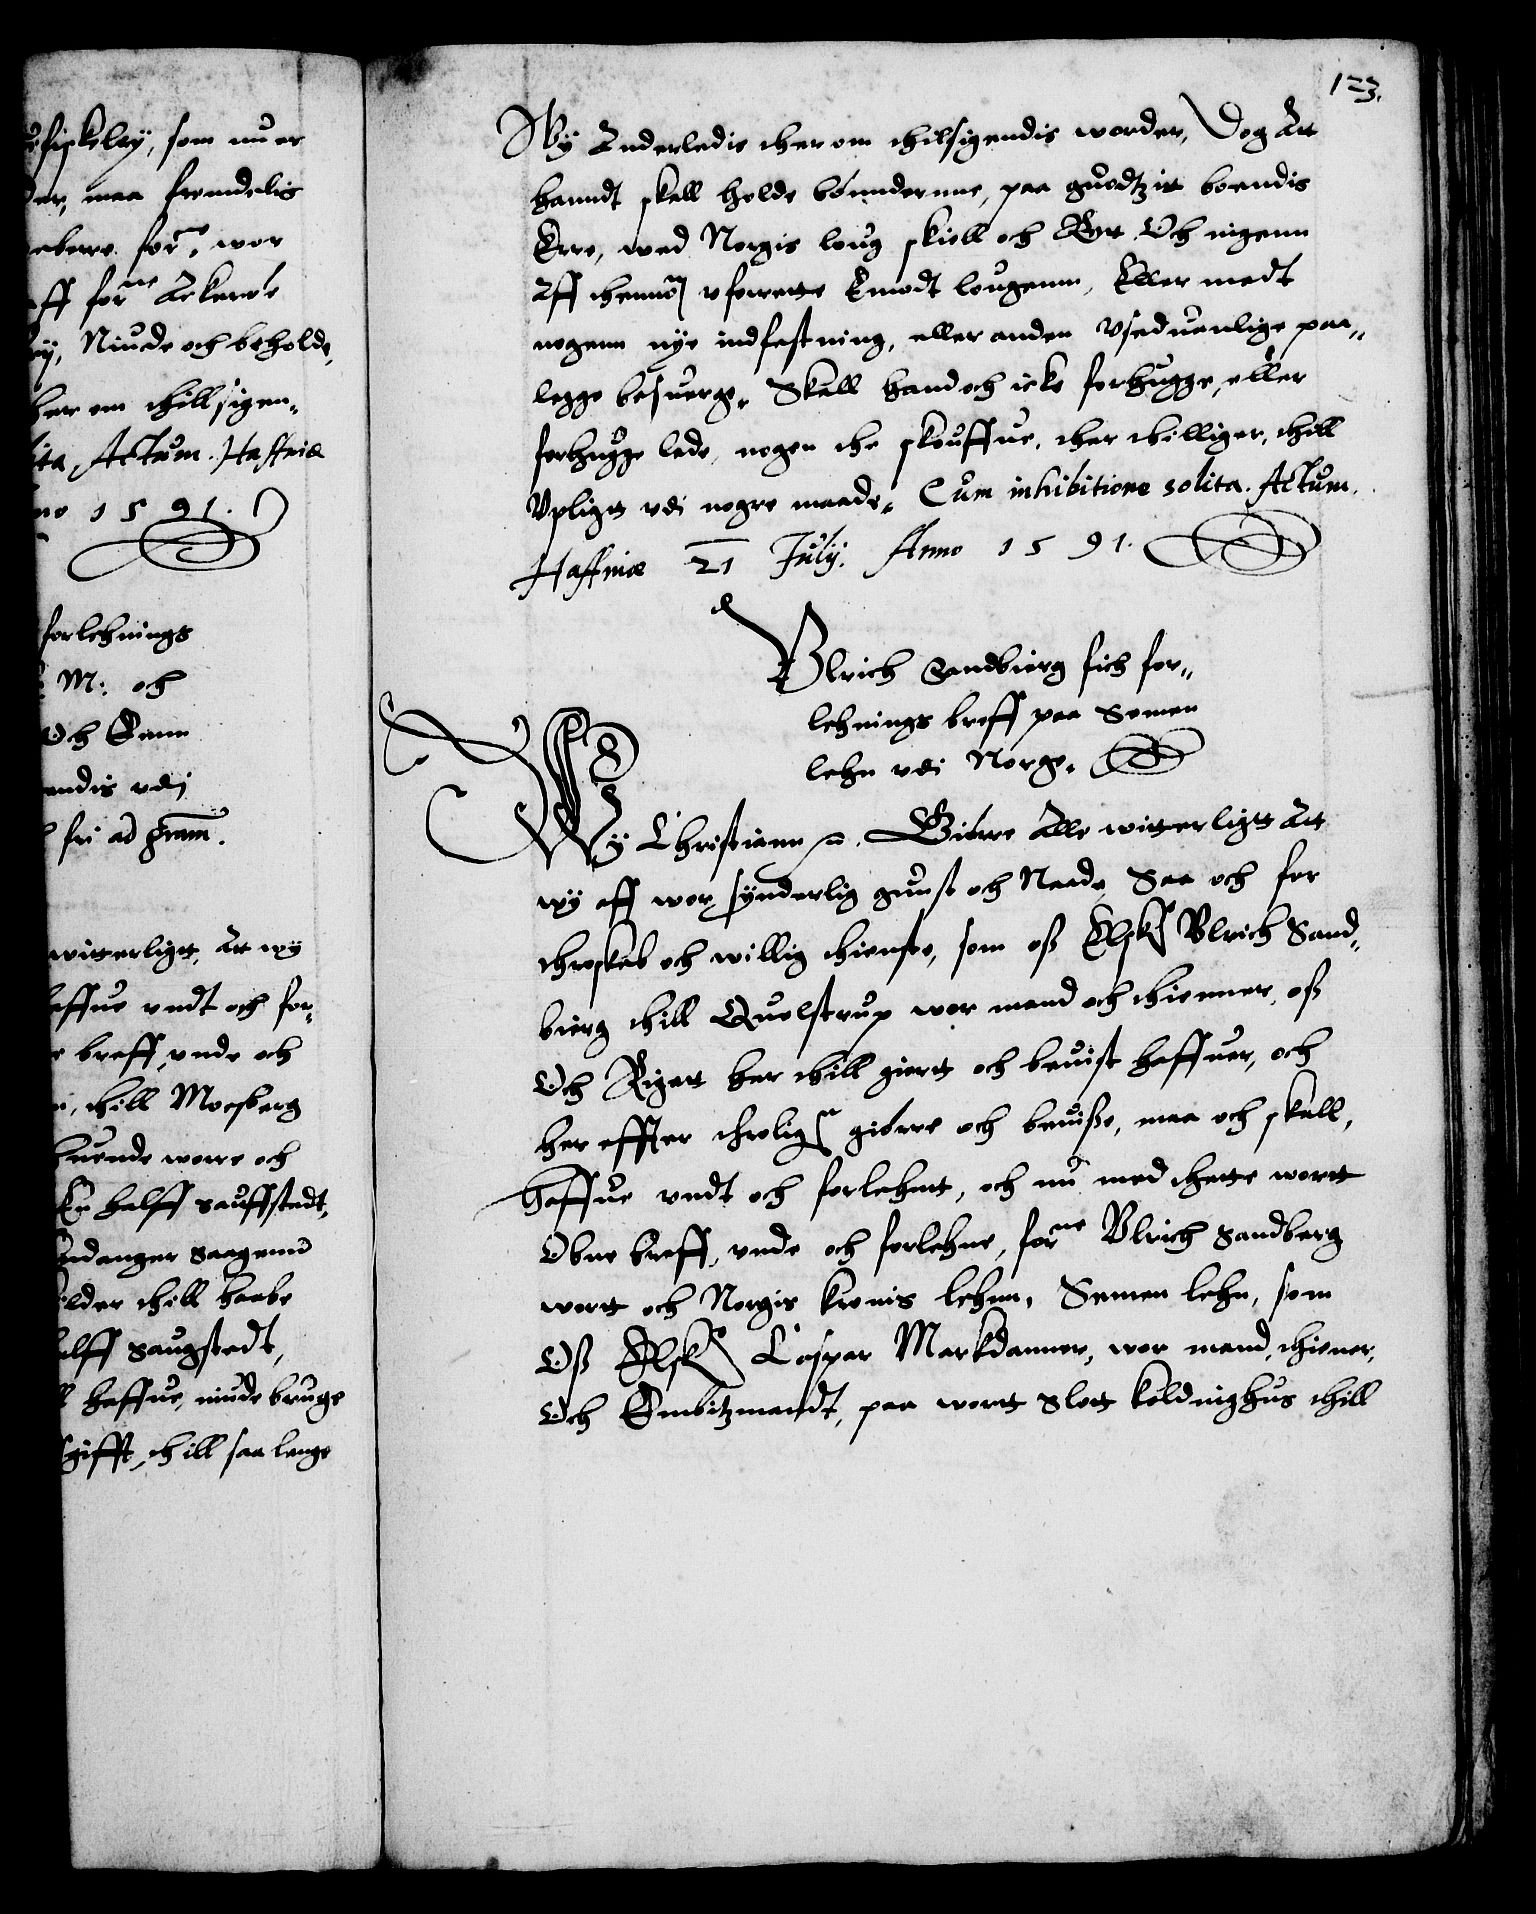 fiskeley, som nu er
er, maa fremdelis
for^ne, wor
aff for^ne Akerøe
Niude och beholde,
her om thillsigen-
ita, Actum. Haffniæ
no 1591.
forlehnings
M: och
Och Eenn
endis udj
fri ad gratiam.
witterligt, At wy
haffue undt och for-
breff, unde och
thill Mocsberg
huende worre och
En halff Sauffstedt,
Saagenn
ilder thill haabe
halff Saugstedt,
haffue, niude bruge
gifft, thill saa lenge
123.
Wy Anderledis ther om thilsigendis worder, Dog At
hanndt skall holde bønndernne, paa guodtzit boendis
Erre, wed Norgis loug skiell och Ret Och ingenn
Aff thennom uforrette Emodt lougenn, Eller medt
nogenn nye indfestning, eller anden Useduanlige paa-
legge besuerge. Skall hand och icke forhugge, eller
forhugge lade, nogen the skouffue, ther thilliger, thill
Upligt udi nogre maade. Cum inhibitione solita. Actum.
Haffniæ 21 July. Anno 1591.
Ulrich Sandbierg fich for-
lehnings breff paa Semen
lehn udi Norge.
Wy Christiann etc. Giørre Alle witterligt At
wy aff wor synderlig gunst och Naade, Saa och for
throskab och willig thieniste, som oss Elske Ulrich Sand-
bierg thill Quelstrup wor mand och thienner, oss
Och Riget her thill giort och beuist haffuer, och
her effter throligen giørre och beuisse, maa och skall,
haffue undt och forlehnt, och nu med thette wort
Obne breff, unde och forlehne, for^ne Ulrich Sandberg
wort och Norgis Kronis lehnn, Semen lehn, som
Oss Elske Casper Markdanner, wor mand, thiener,
Och Embitzmandt, paa wort Slott Koldinghus thill